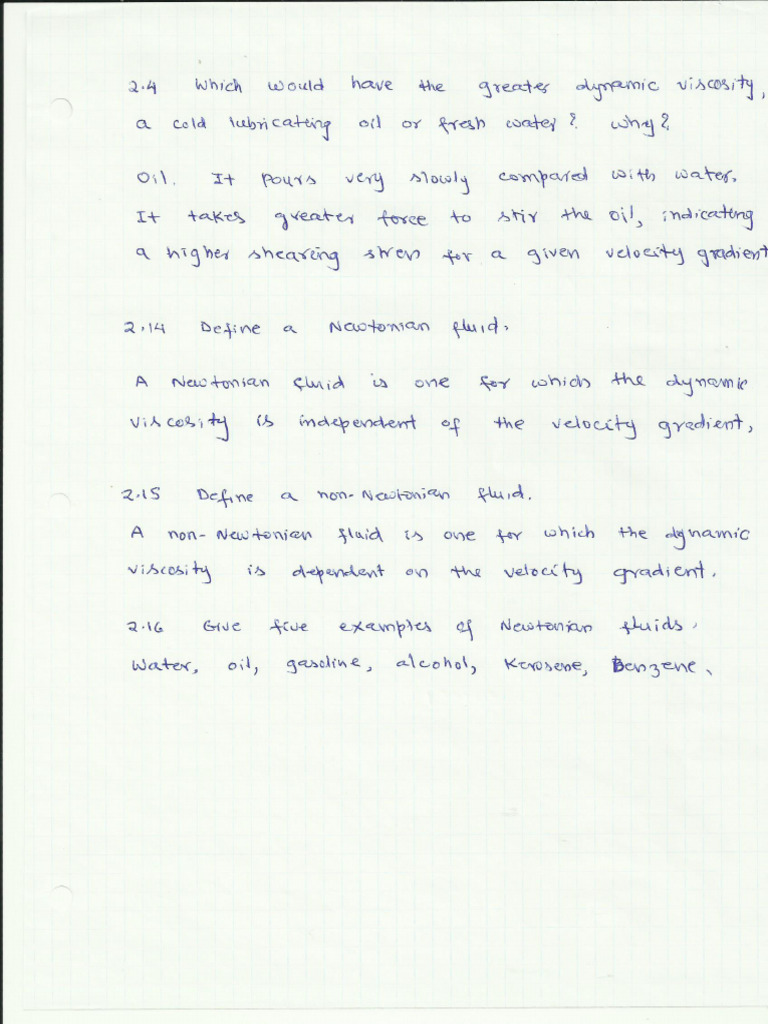 2.4 Which would have the greater dynamic viscosity,
a cold lubricating oil or fresh water? Why?
Oil. It pours very slowly compared with water.
It takes greater force to stir the oil, indicating
a higher shearing stress for a given velocity gradient
2.14 Define a Newtonian fluid.
A Newtonian fluid is one for which the dynamic
viscosity is independent of the velocity gradient,
2.15 Define a non-Newtonian fluid.
A non-Newtonian fluid is one for which the dynamic
viscosity is dependent on the velocity gradient.
2.16 Give five examples of Newtonian fluids.
Water, oil, gasoline, alcohol, Kerosene, Benzene.